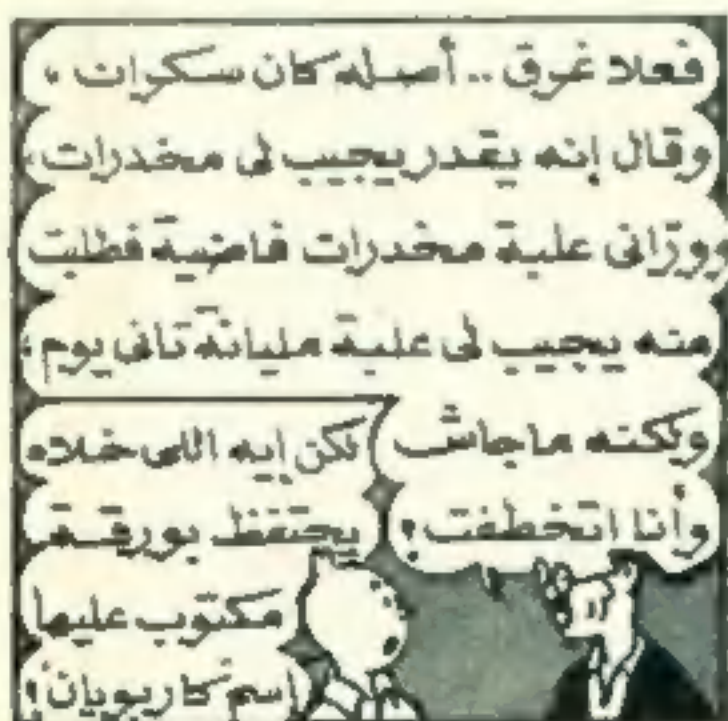 فعلا غرق .. أصله كان سكران ،
وقال إنه يقدر يجيب لى مخدرات ،
ووَرَّانى علبة مخدرات فاضية فطلبت
منه يجيب لى علبة مليانة تانى يوم ،
ولكنه ماجاش
وأنا اتخطفت !
لكن إيه اللى خلاه
يحتفظ بورقة
مكتوب عليها
إسم كاربويان !